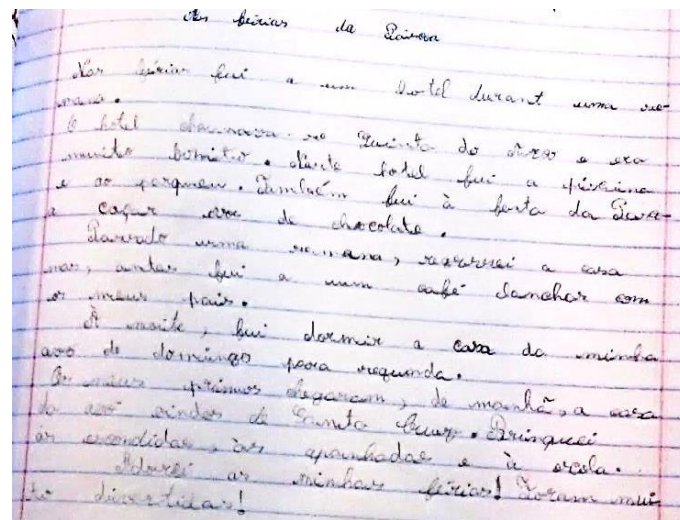 As férias da Páscoa
Nas férias fui a um hotel durant uma se-
mana.
O hotel chamava-se Quinta do e era
muito bonito. Neste hotel fui a piscina
e ao parqueu. Também fui à festa da
a caçar ovo de chocolate.
Passado uma semana, regressei a casa
mas, antes fui a um café lanchar com
os meus pais.
À noite, fui dormir a casa da minha
avó de domingo para segunda.
Os meus primos chegaram, de manhã, a casa
da avó vindos de Santa Cruz. Brinquei
às escondidas, às apanhadas e à escola.
Adorei as minhas férias! Foram mui
to divertidas!